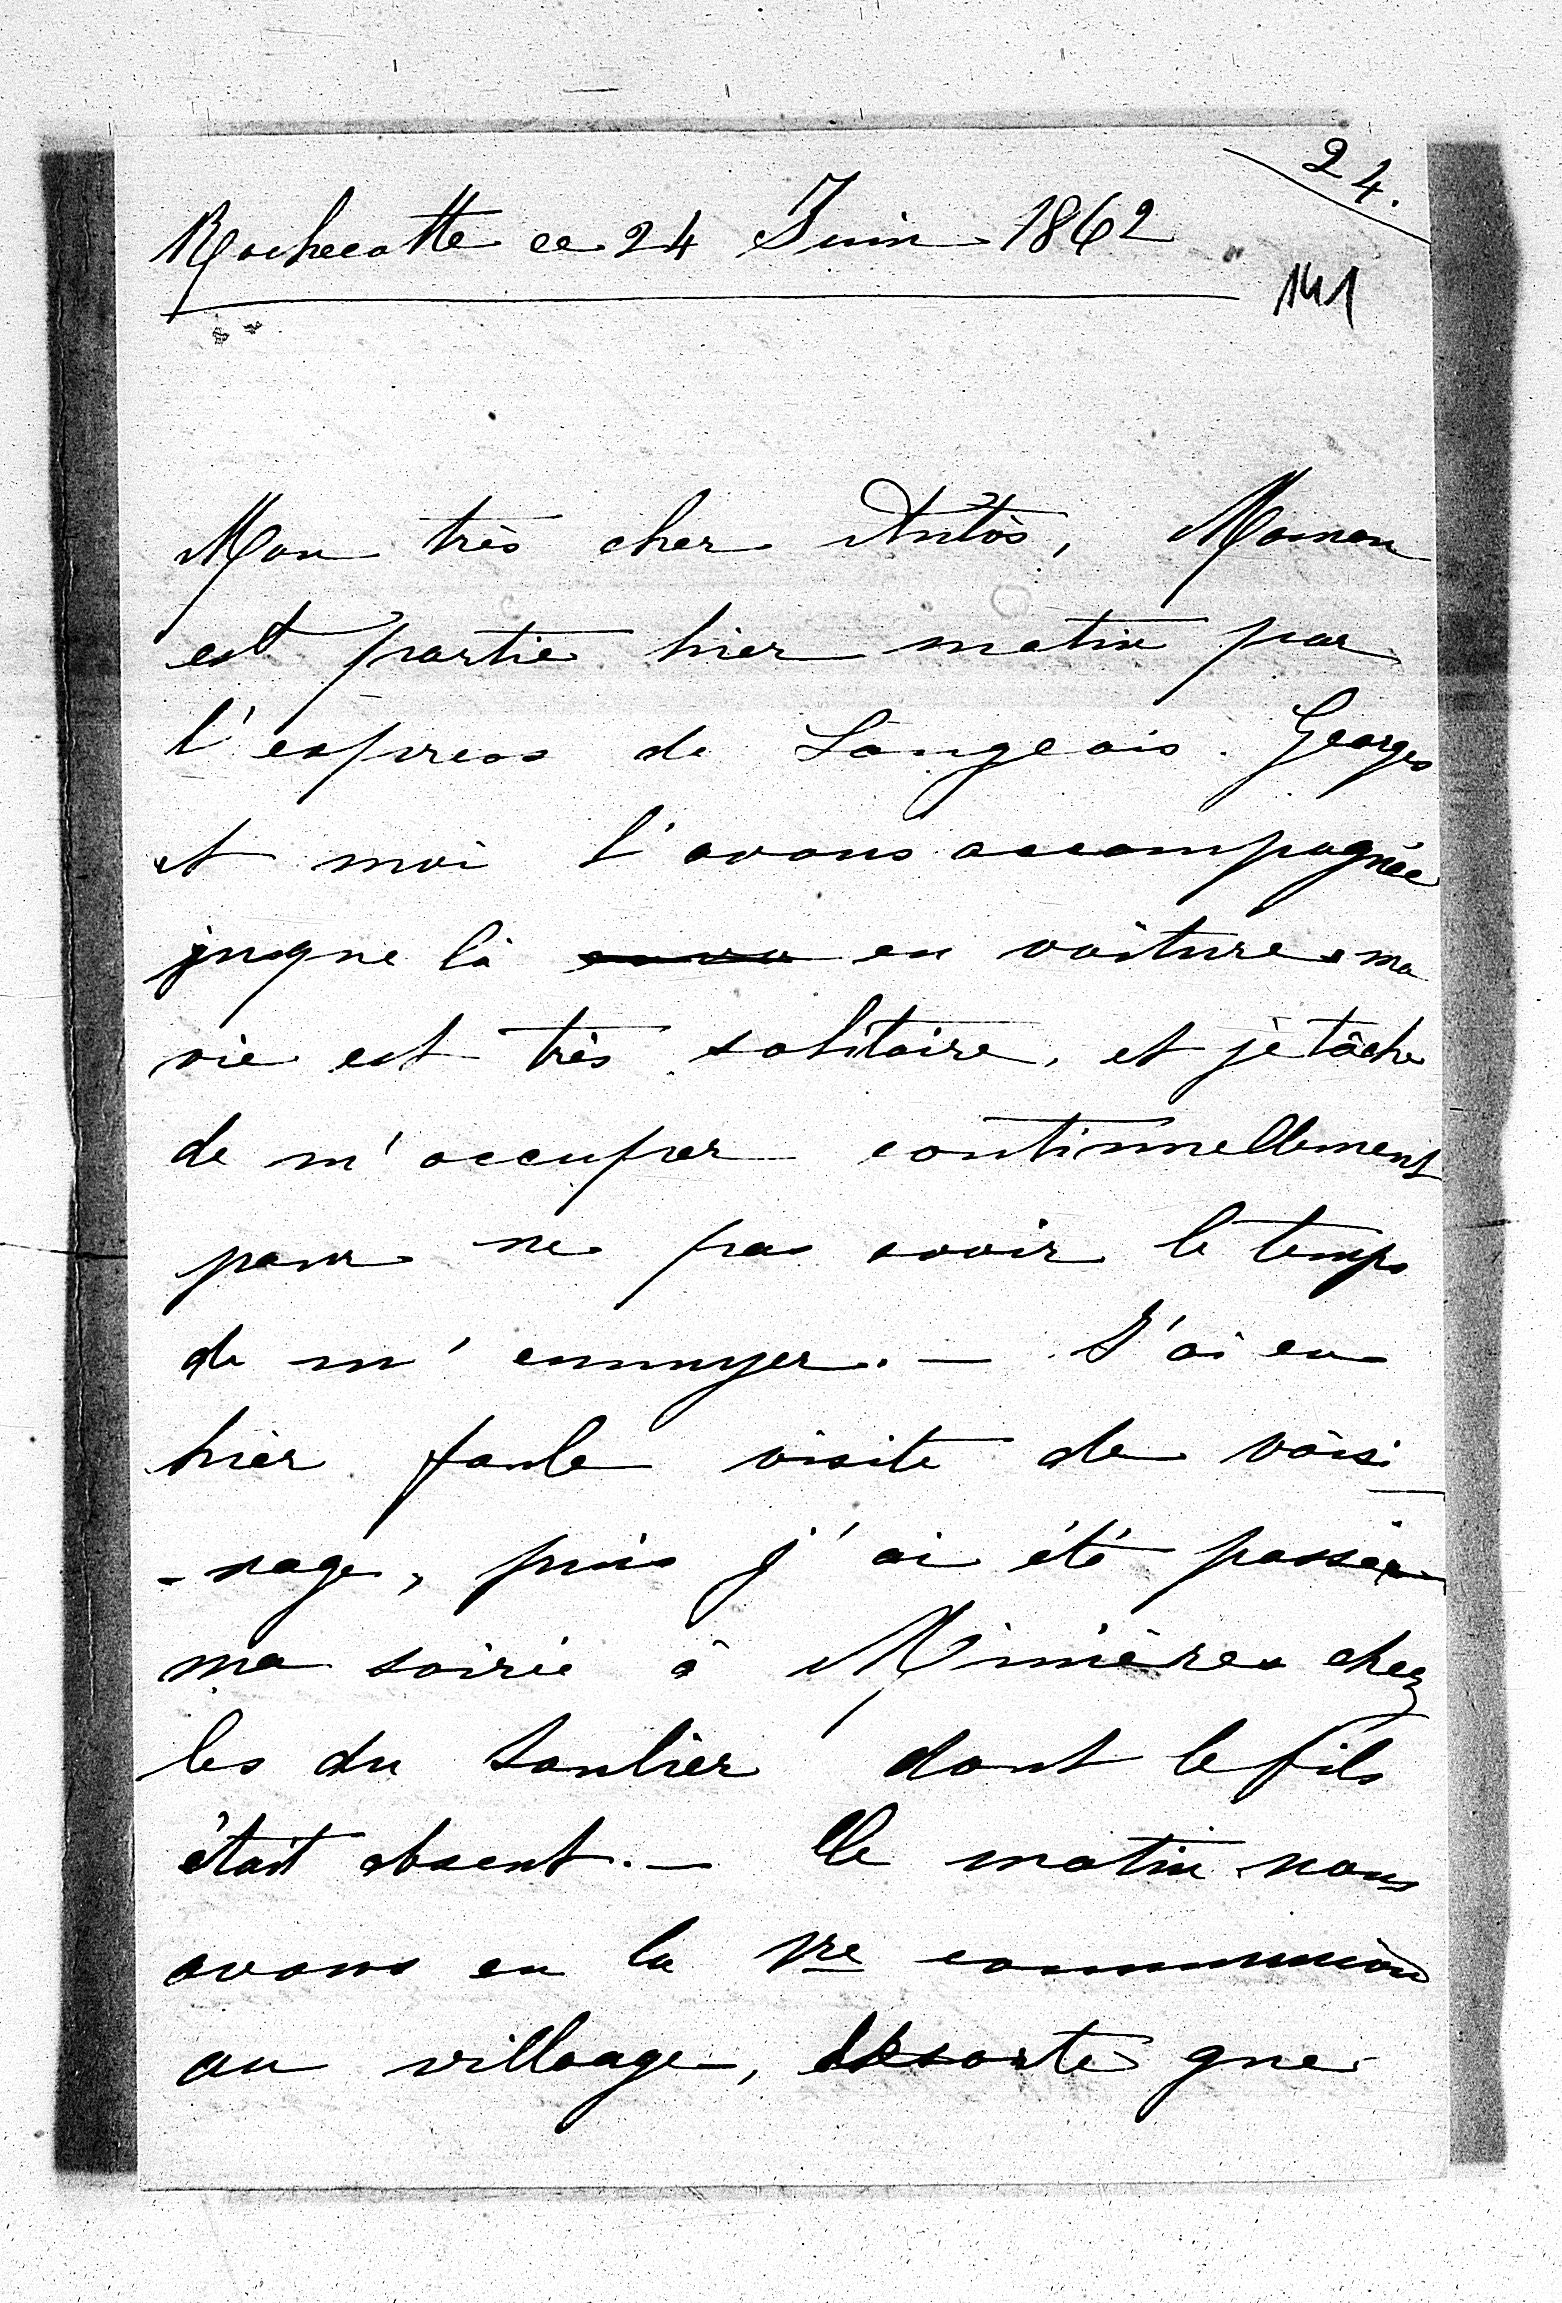 24.
Rochecotte ce 24 Juin 1862
141
Mon très cher Antòs, Maman
est partie hier matin par
l'express de Langeais. Georges
et moi l'avons accompagnée
jusque là en voiture ma
vie est très solitaire, et je tâche
de m'occuper continuellement
pour ne pas avoir le temps
de m'ennuyer. — J'ai eu
hier foule visite de voisi-
-nage, puis j'ai été passer
ma soirée à Minières chez
les du Soulier dont le fils
était absent. — Le matin nous
avons eu la 1re communion
au village, desorte que